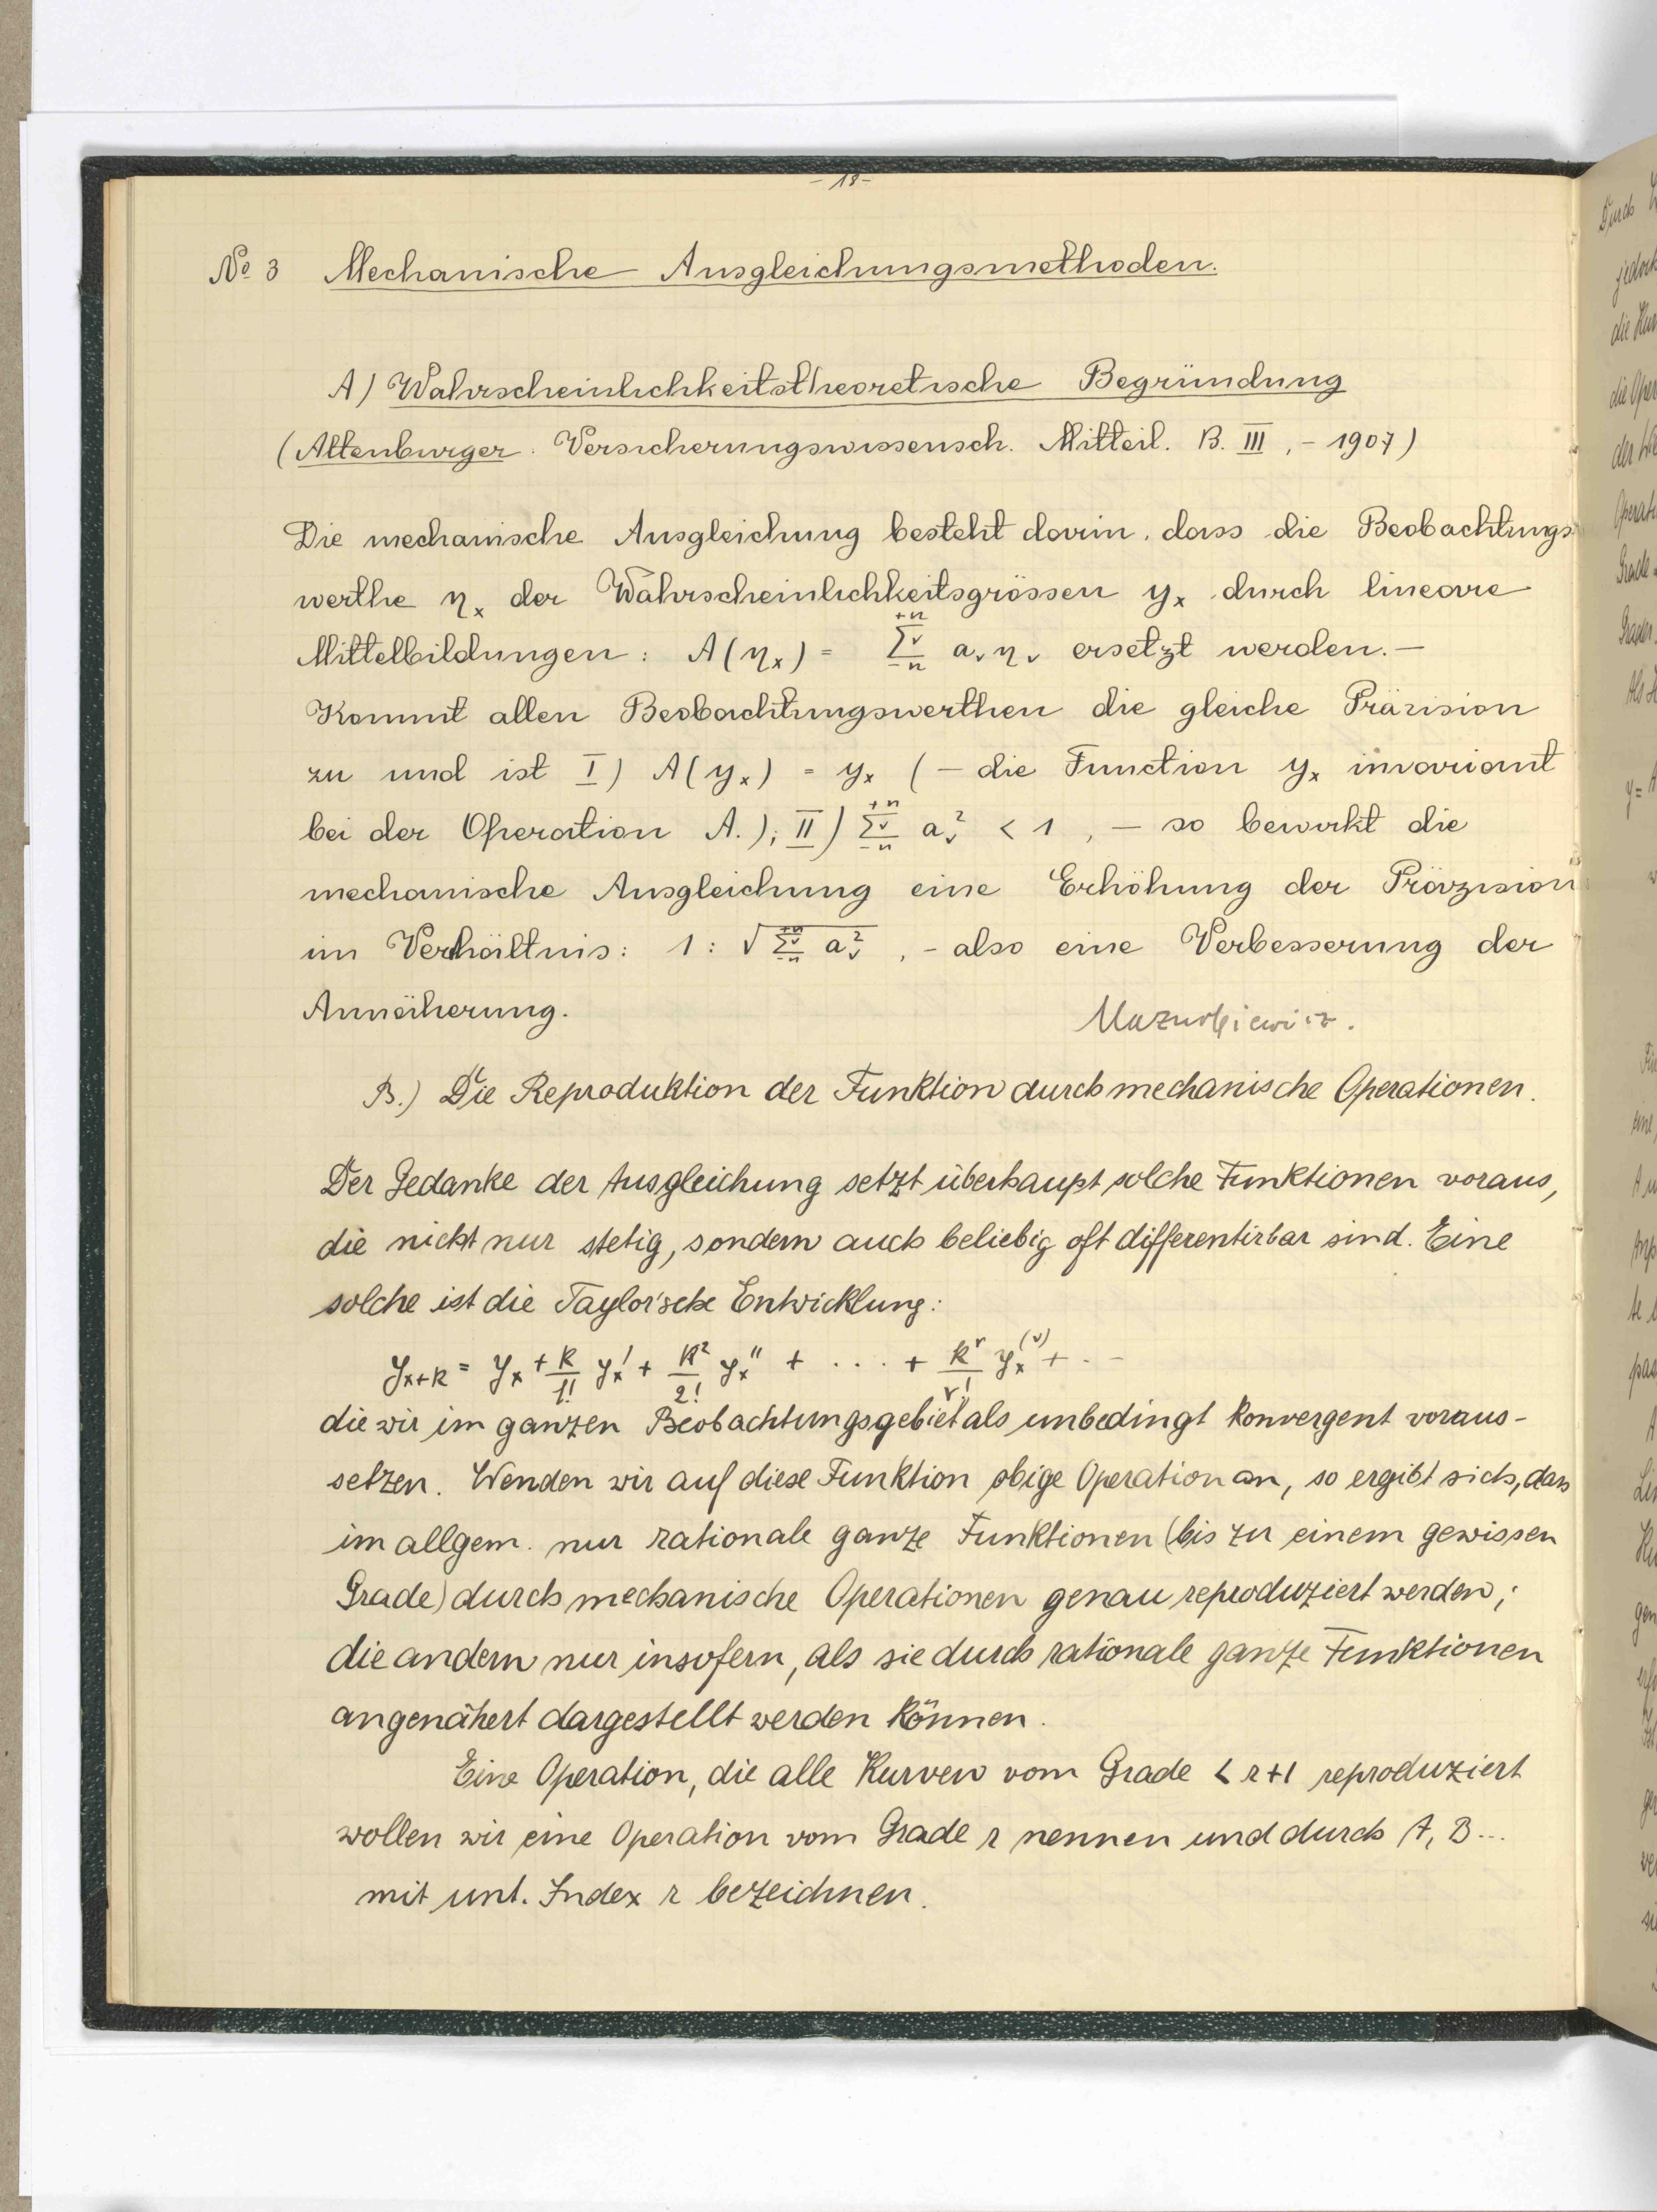 - 18 -
№ 3 Mechanische Ausgleichungsmethoden.
A) Wahrscheinlichkeitstheoretische Begründung
(Altenburger. Versicherungswissensch. Mitteil. B. III, - 1907)
Die mechanische Ausgleichung besteht darin, dass die Beobachtungs
werthe η_x der Wahrscheinlichkeitsgrössen y_x durch lineare
Mittelbildungen: A(η_x) = Σ_{-n}^{+n} a_ν η_ν ersetzt werden.—
Kommt allen Beobachtungswerthen die gleiche Präzision
zu und ist I) A(y_x) = y_x (— die Function y_x invariant
bei der Operation A.); II) Σ_{-n}^{+n} a_ν² < 1, — so bewirkt die
mechanische Ausgleichung eine Erhöhung der Präzision
im Verhältnis: 1 : √(Σ_{-n}^{+n} a_ν²), - also eine Verbesserung der
Annäherung. Mazurkiewicz.
B.) Die Reproduktion der Funktion durch mechanische Operationen.
Der Gedanke der Ausgleichung setzt überhaupt solche Funktionen voraus,
die nicht nur stetig, sondern auch beliebig oft differentirbar sind. Eine
solche ist die Taylor'sche Entwicklung:
y_{x+k} = y_x + k/1! y_x' + k²/2! y_x'' + .... + k^r/r! y_x^{(r)} + ...
die wir im ganzen Beobachtungsgebiet als unbedingt konvergent voraus-
setzen. Wenden wir auf diese Funktion obige Operation an, so ergibt sich, dass
im allgem. nur rationale ganze Funktionen (bis zu einem gewissen
Grade) durch mechanische Operationen genau reproduziert werden;
die andern nur insofern, als sie durch rationale ganze Funktionen
angenähert dargestellt werden können.
Eine Operation, die alle Kurven vom Grade < r+1 reproduziert
wollen wir eine Operation vom Grade r nennen und durch A, B...
mit unt. Index r bezeichnen.